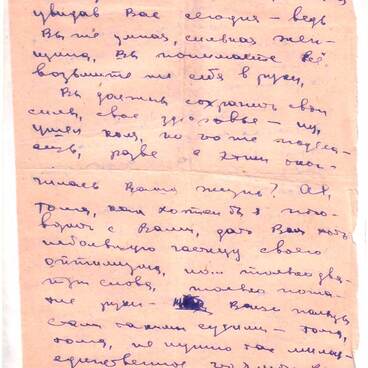 увидав Вас сегодня – ведь
Вы же умная, сильная жен-
щина, Вы понимаете всё
возьмите же себя в руки,
Вы должны сохранить свои
силы, свое здоровье –
ушел Коля, но
разве с этим окон-
чилась Ваша жизнь? Ах,
Тома, как хотел бы я пого-
ворить с Вами, дать Вам хоть
небольшую частицу своего
оптимизма, но... только два-
три слова, только пожа-
тие руки – Ваши пальцы
стали такими сухими – Тома,
Тома, не нужно так
единственное